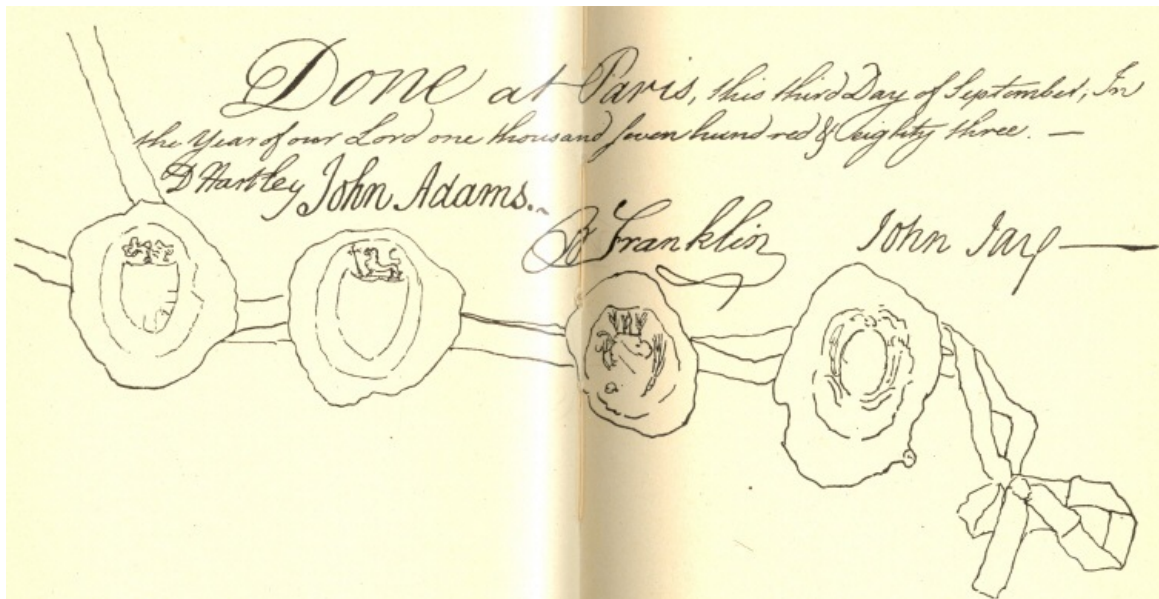 Done at Paris, this third Day of September, In
the Year of our Lord one thousand seven hundred & eighty three. —
D Hartley John Adams. B Franklin John Jay —